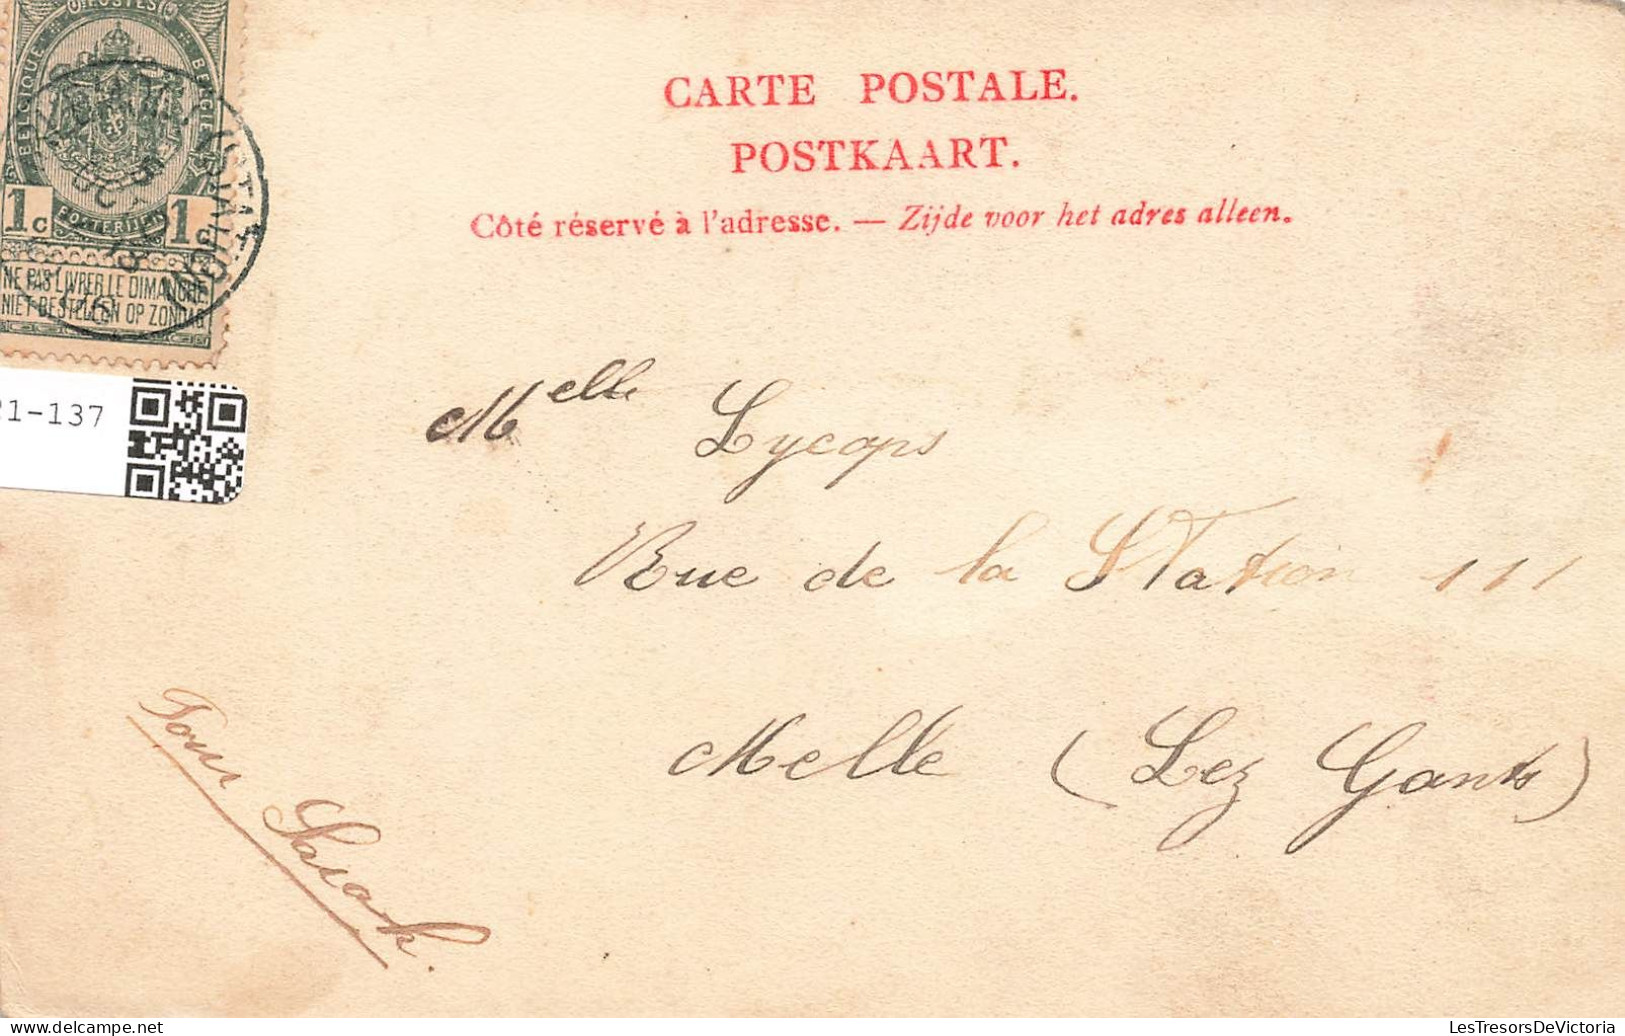 POSTES
BELGIQUE BELGIË
1c 1c
POSTERIJEN
NE PAS LIVRER LE DIMANCHE
NIET BESTELLEN OP ZONDAG
21-137
CARTE POSTALE.
POSTKAART.
Côté réservé à l'adresse. — Zijde voor het adres alleen.
Melle Lycops
Rue de la Station 111
Melle (Lez Gants)
Pour Sarah.
LesTresorsDeVictoria